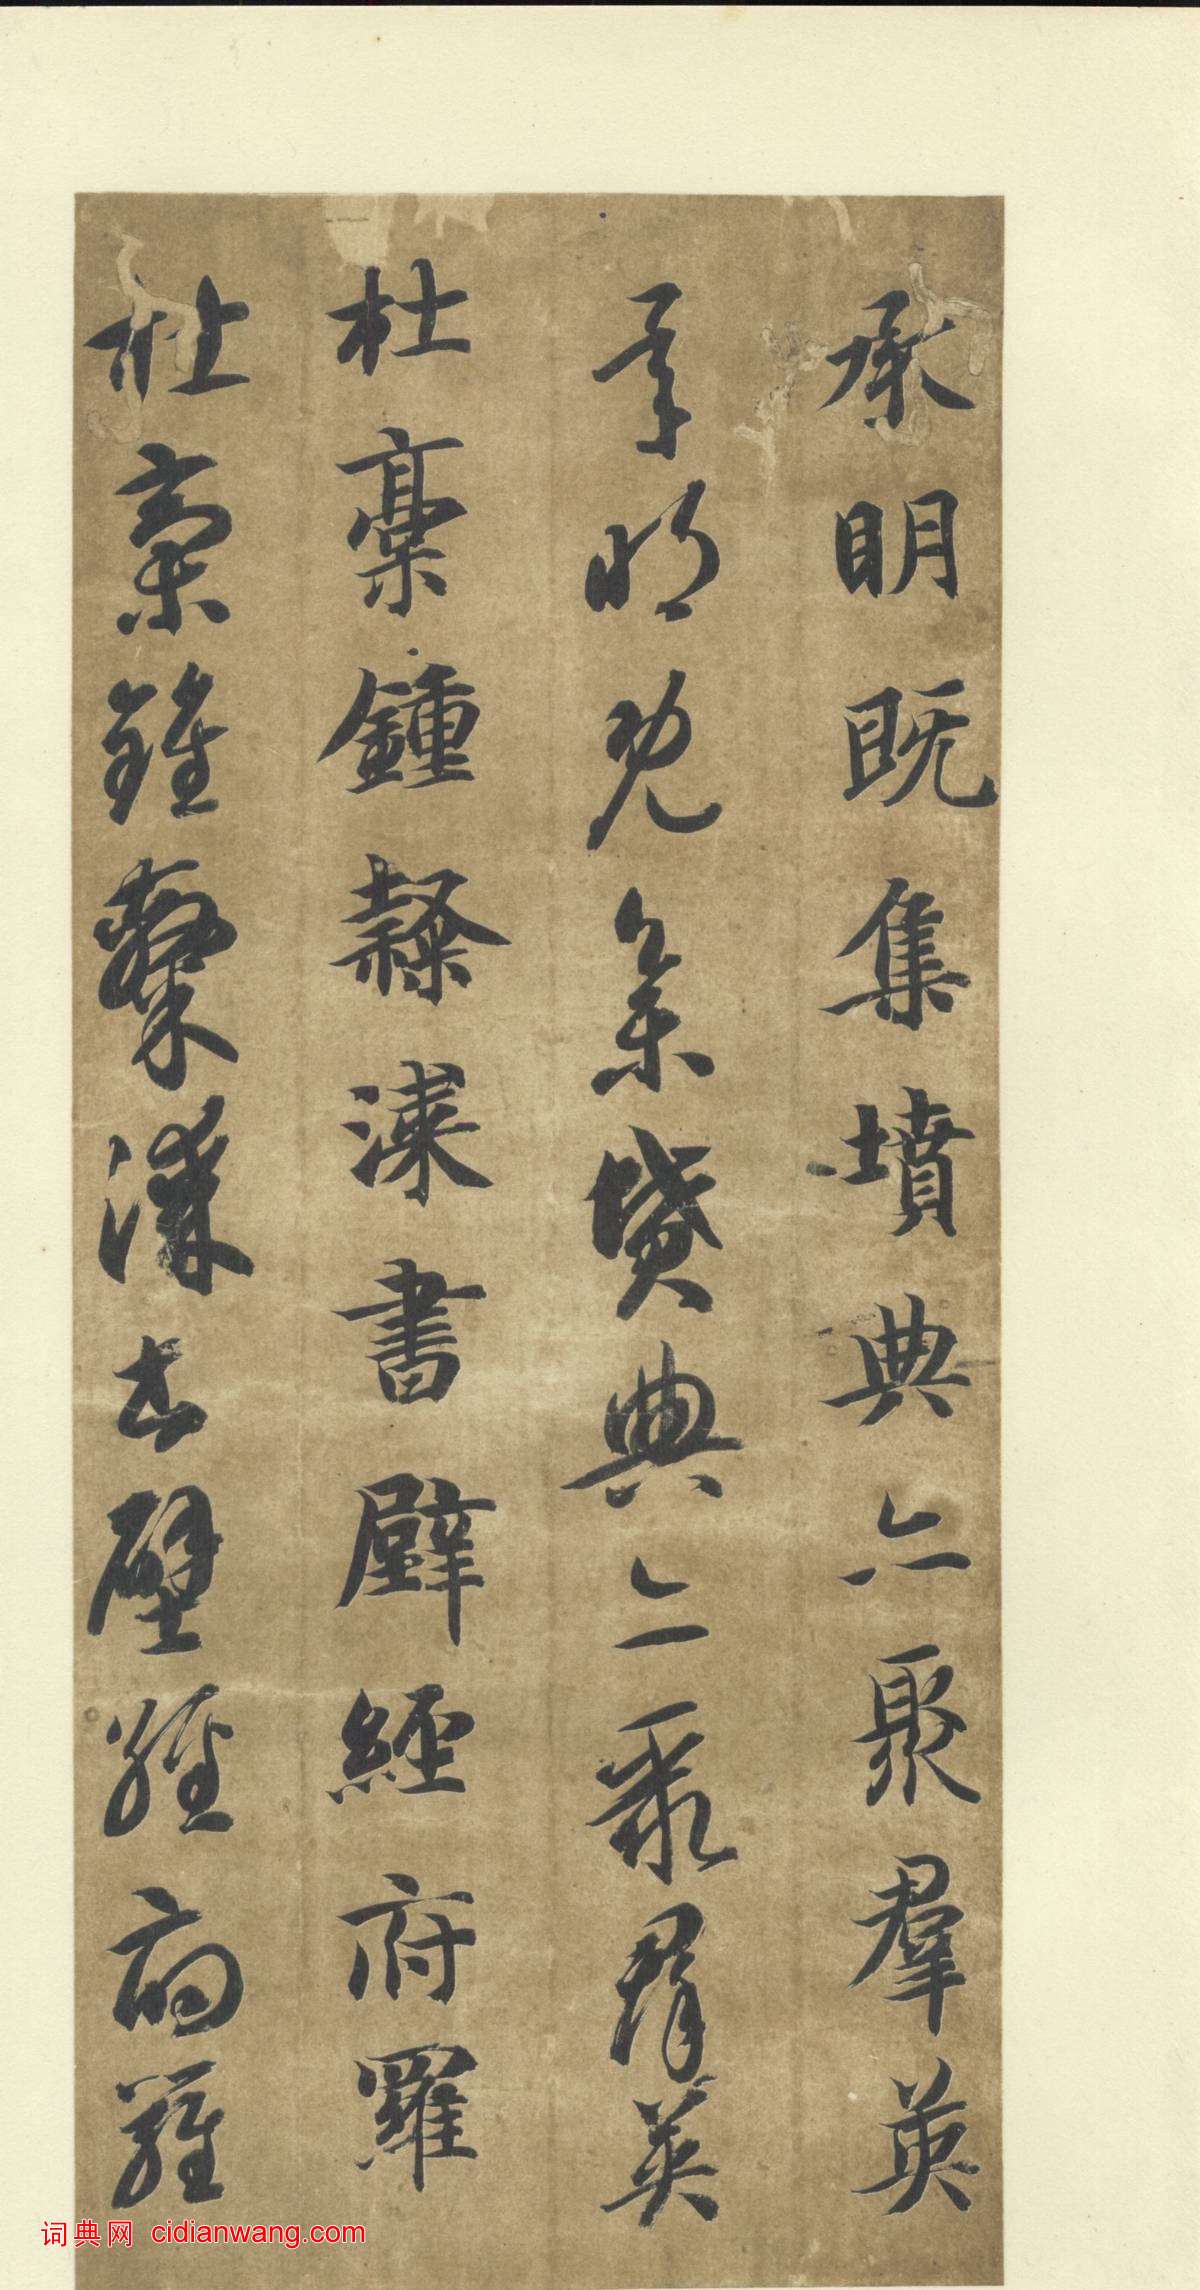 承明既集墳典亦聚羣英
承明既集墳典亦聚群英
杜稾鍾隸漆書壁經府羅
杜稾鍾隸漆書壁經府羅
词典网 cidianwang.com